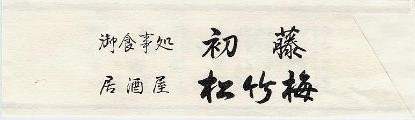 御食事処 初藤
居酒屋 松竹梅